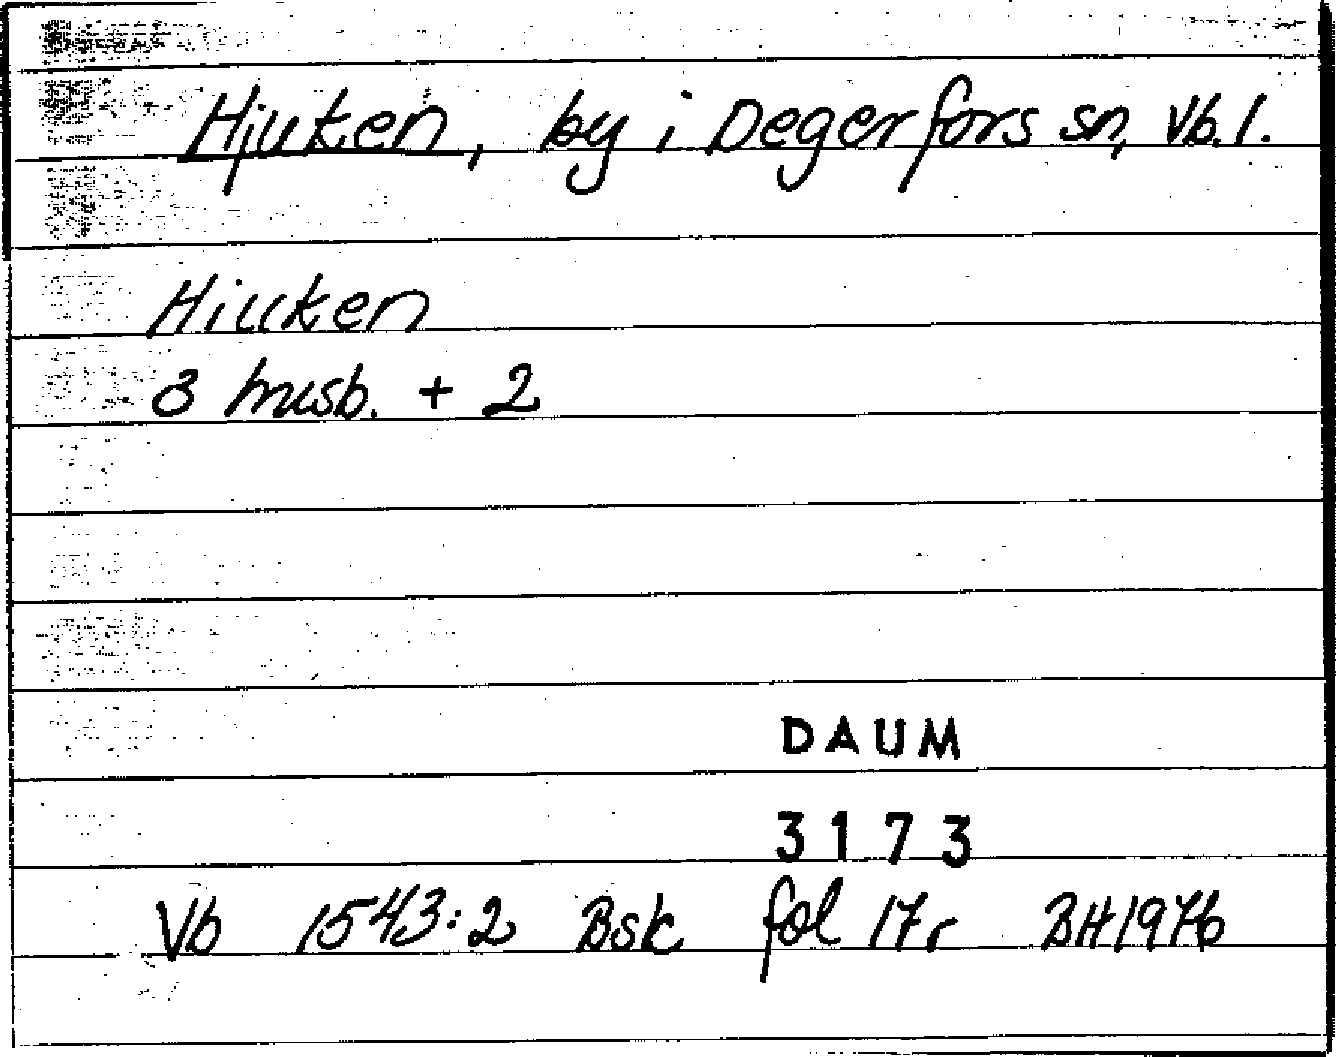 Hjuken, by i Degerfors sn, Vb. l.
Hiuken
3 husb. + 2
DAUM
3173
Vb 1543:2 Bsk fol 17r BH1976